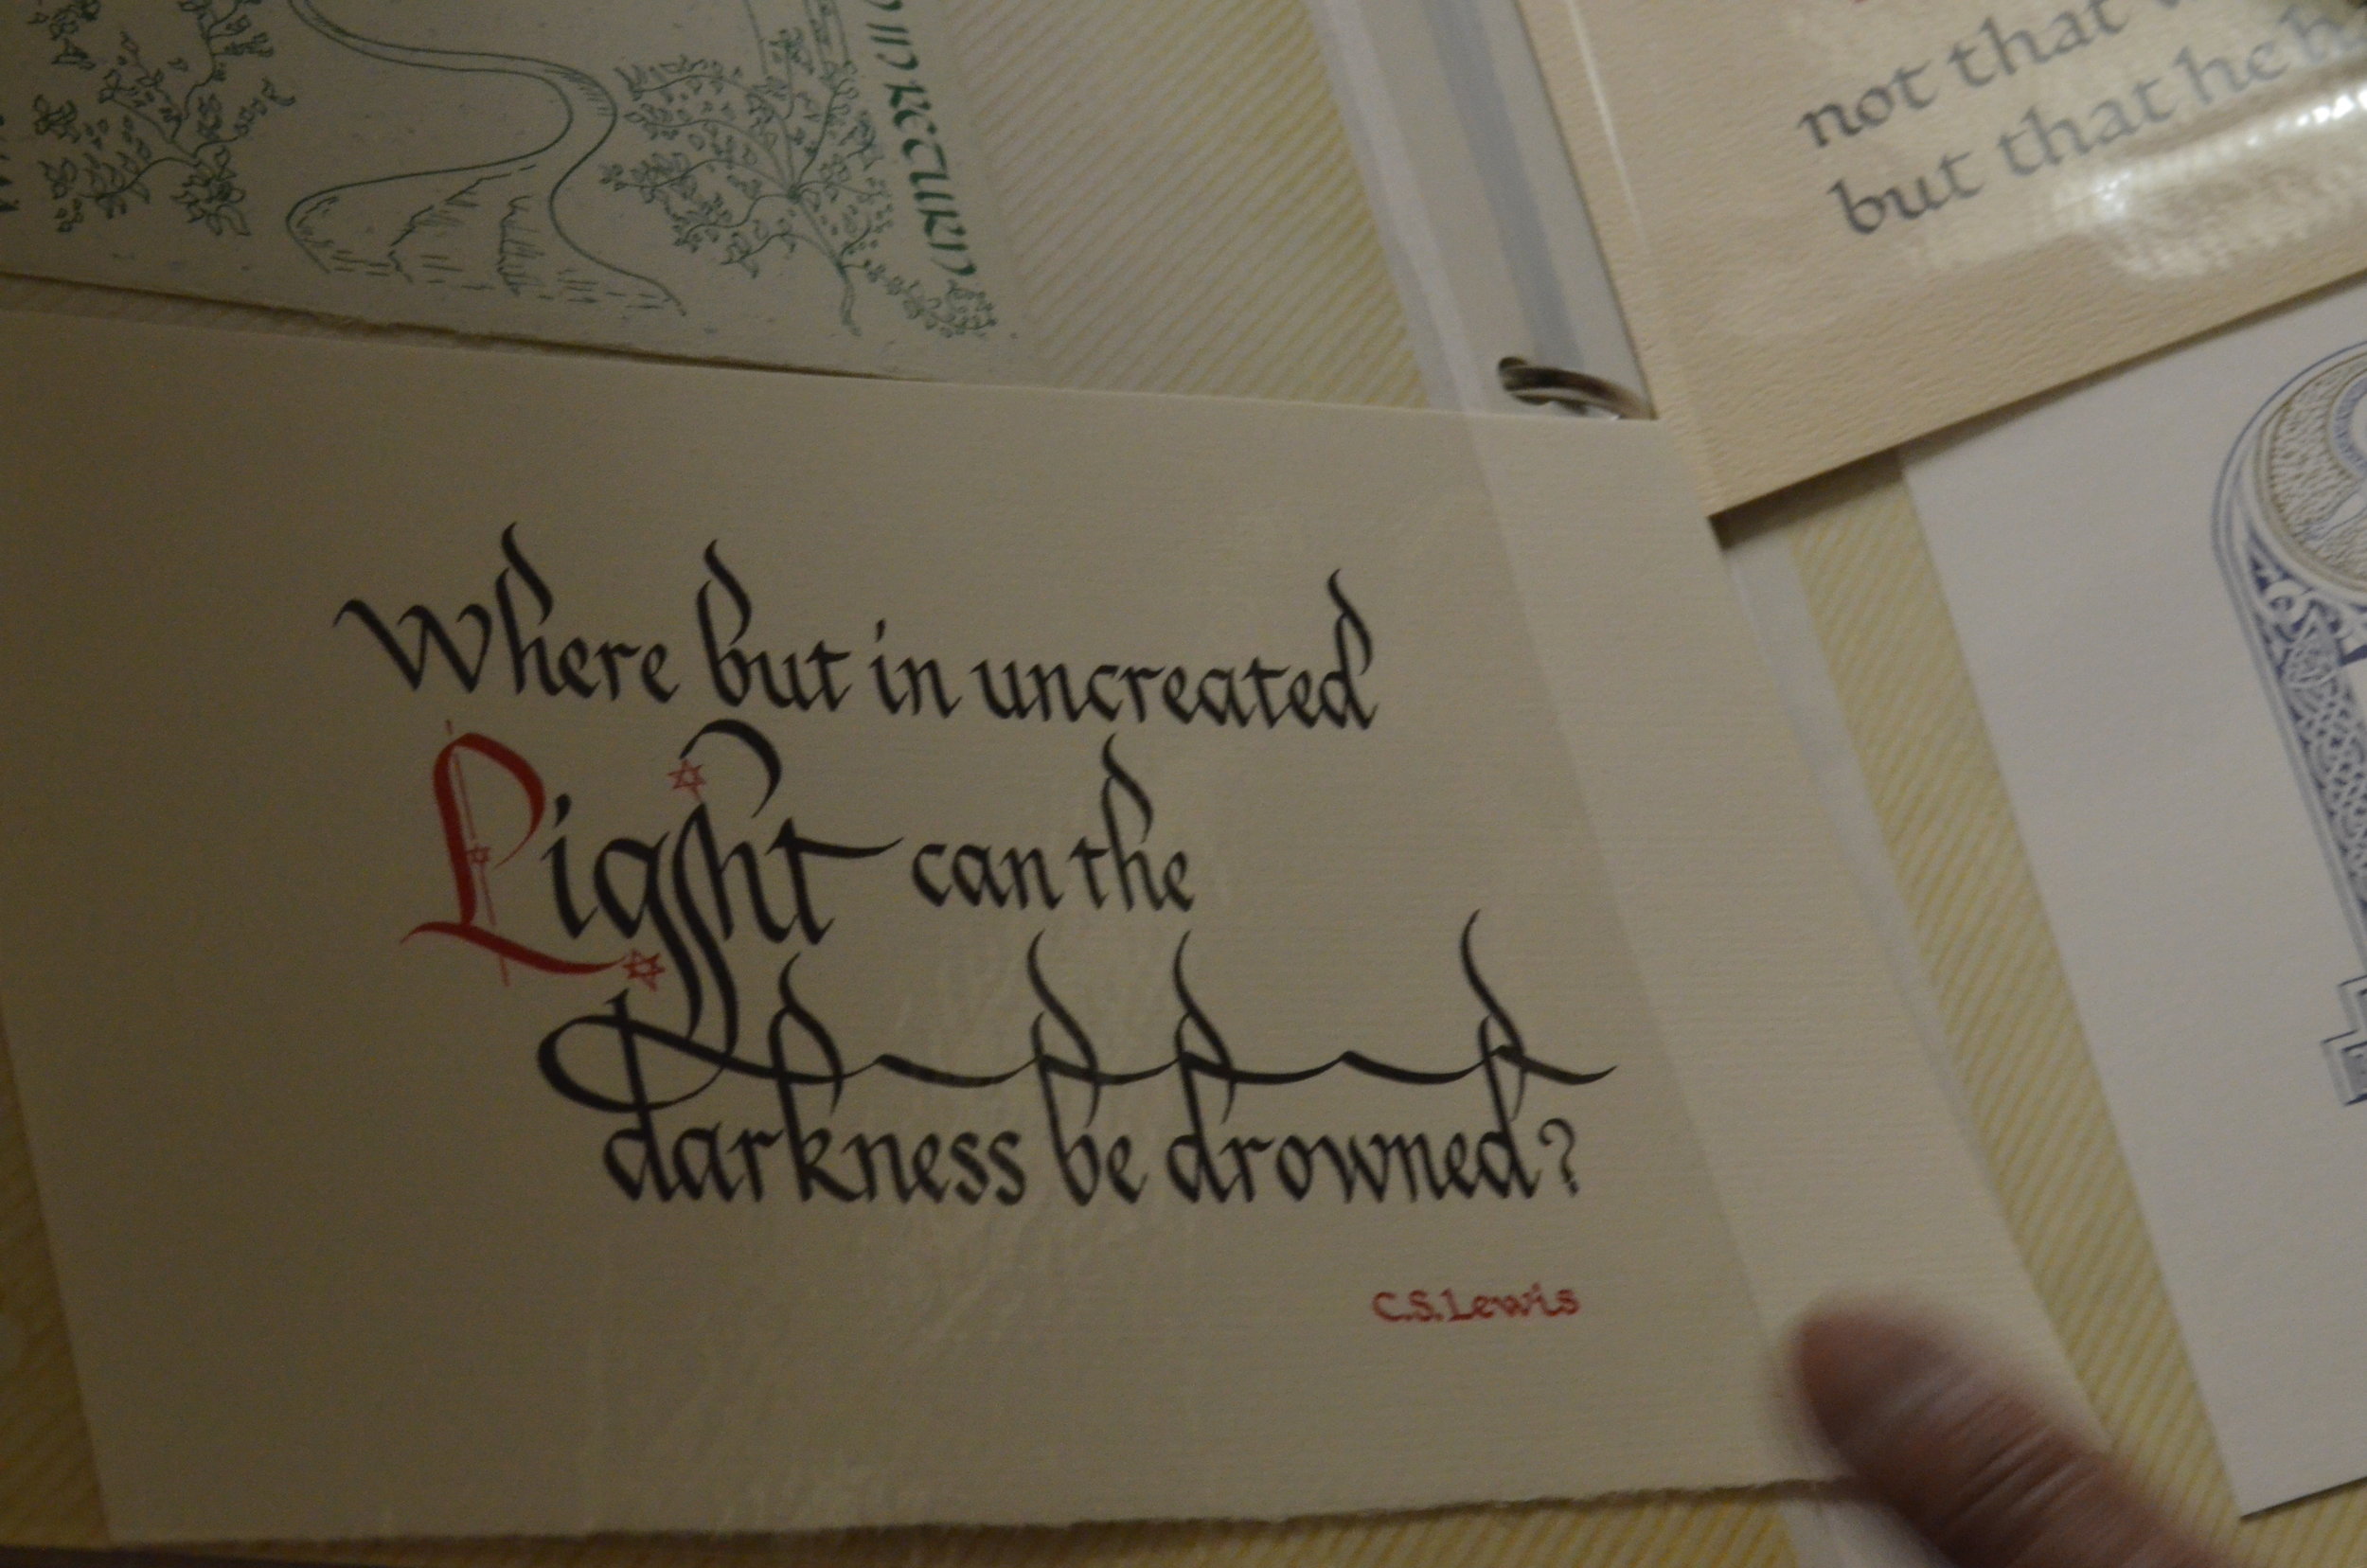 not that
but that he
Where but in uncreated
Light can the
darkness be drowned?
C.S.Lewis